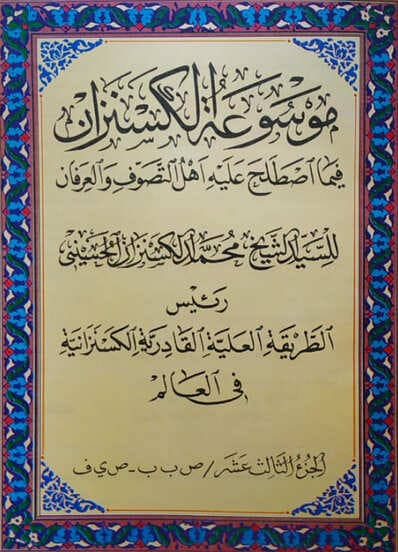 موسوعة الكسنزان
فيما اصطلح عليه أهل التصوف والعرفان
للسيد الشيخ محمد الكسنزان الحسيني
رئيس
الطريقة العلية القادرية الكسنزانية
في العالم
الجزء الثالث عشر / ص ب ب - ص ي ف